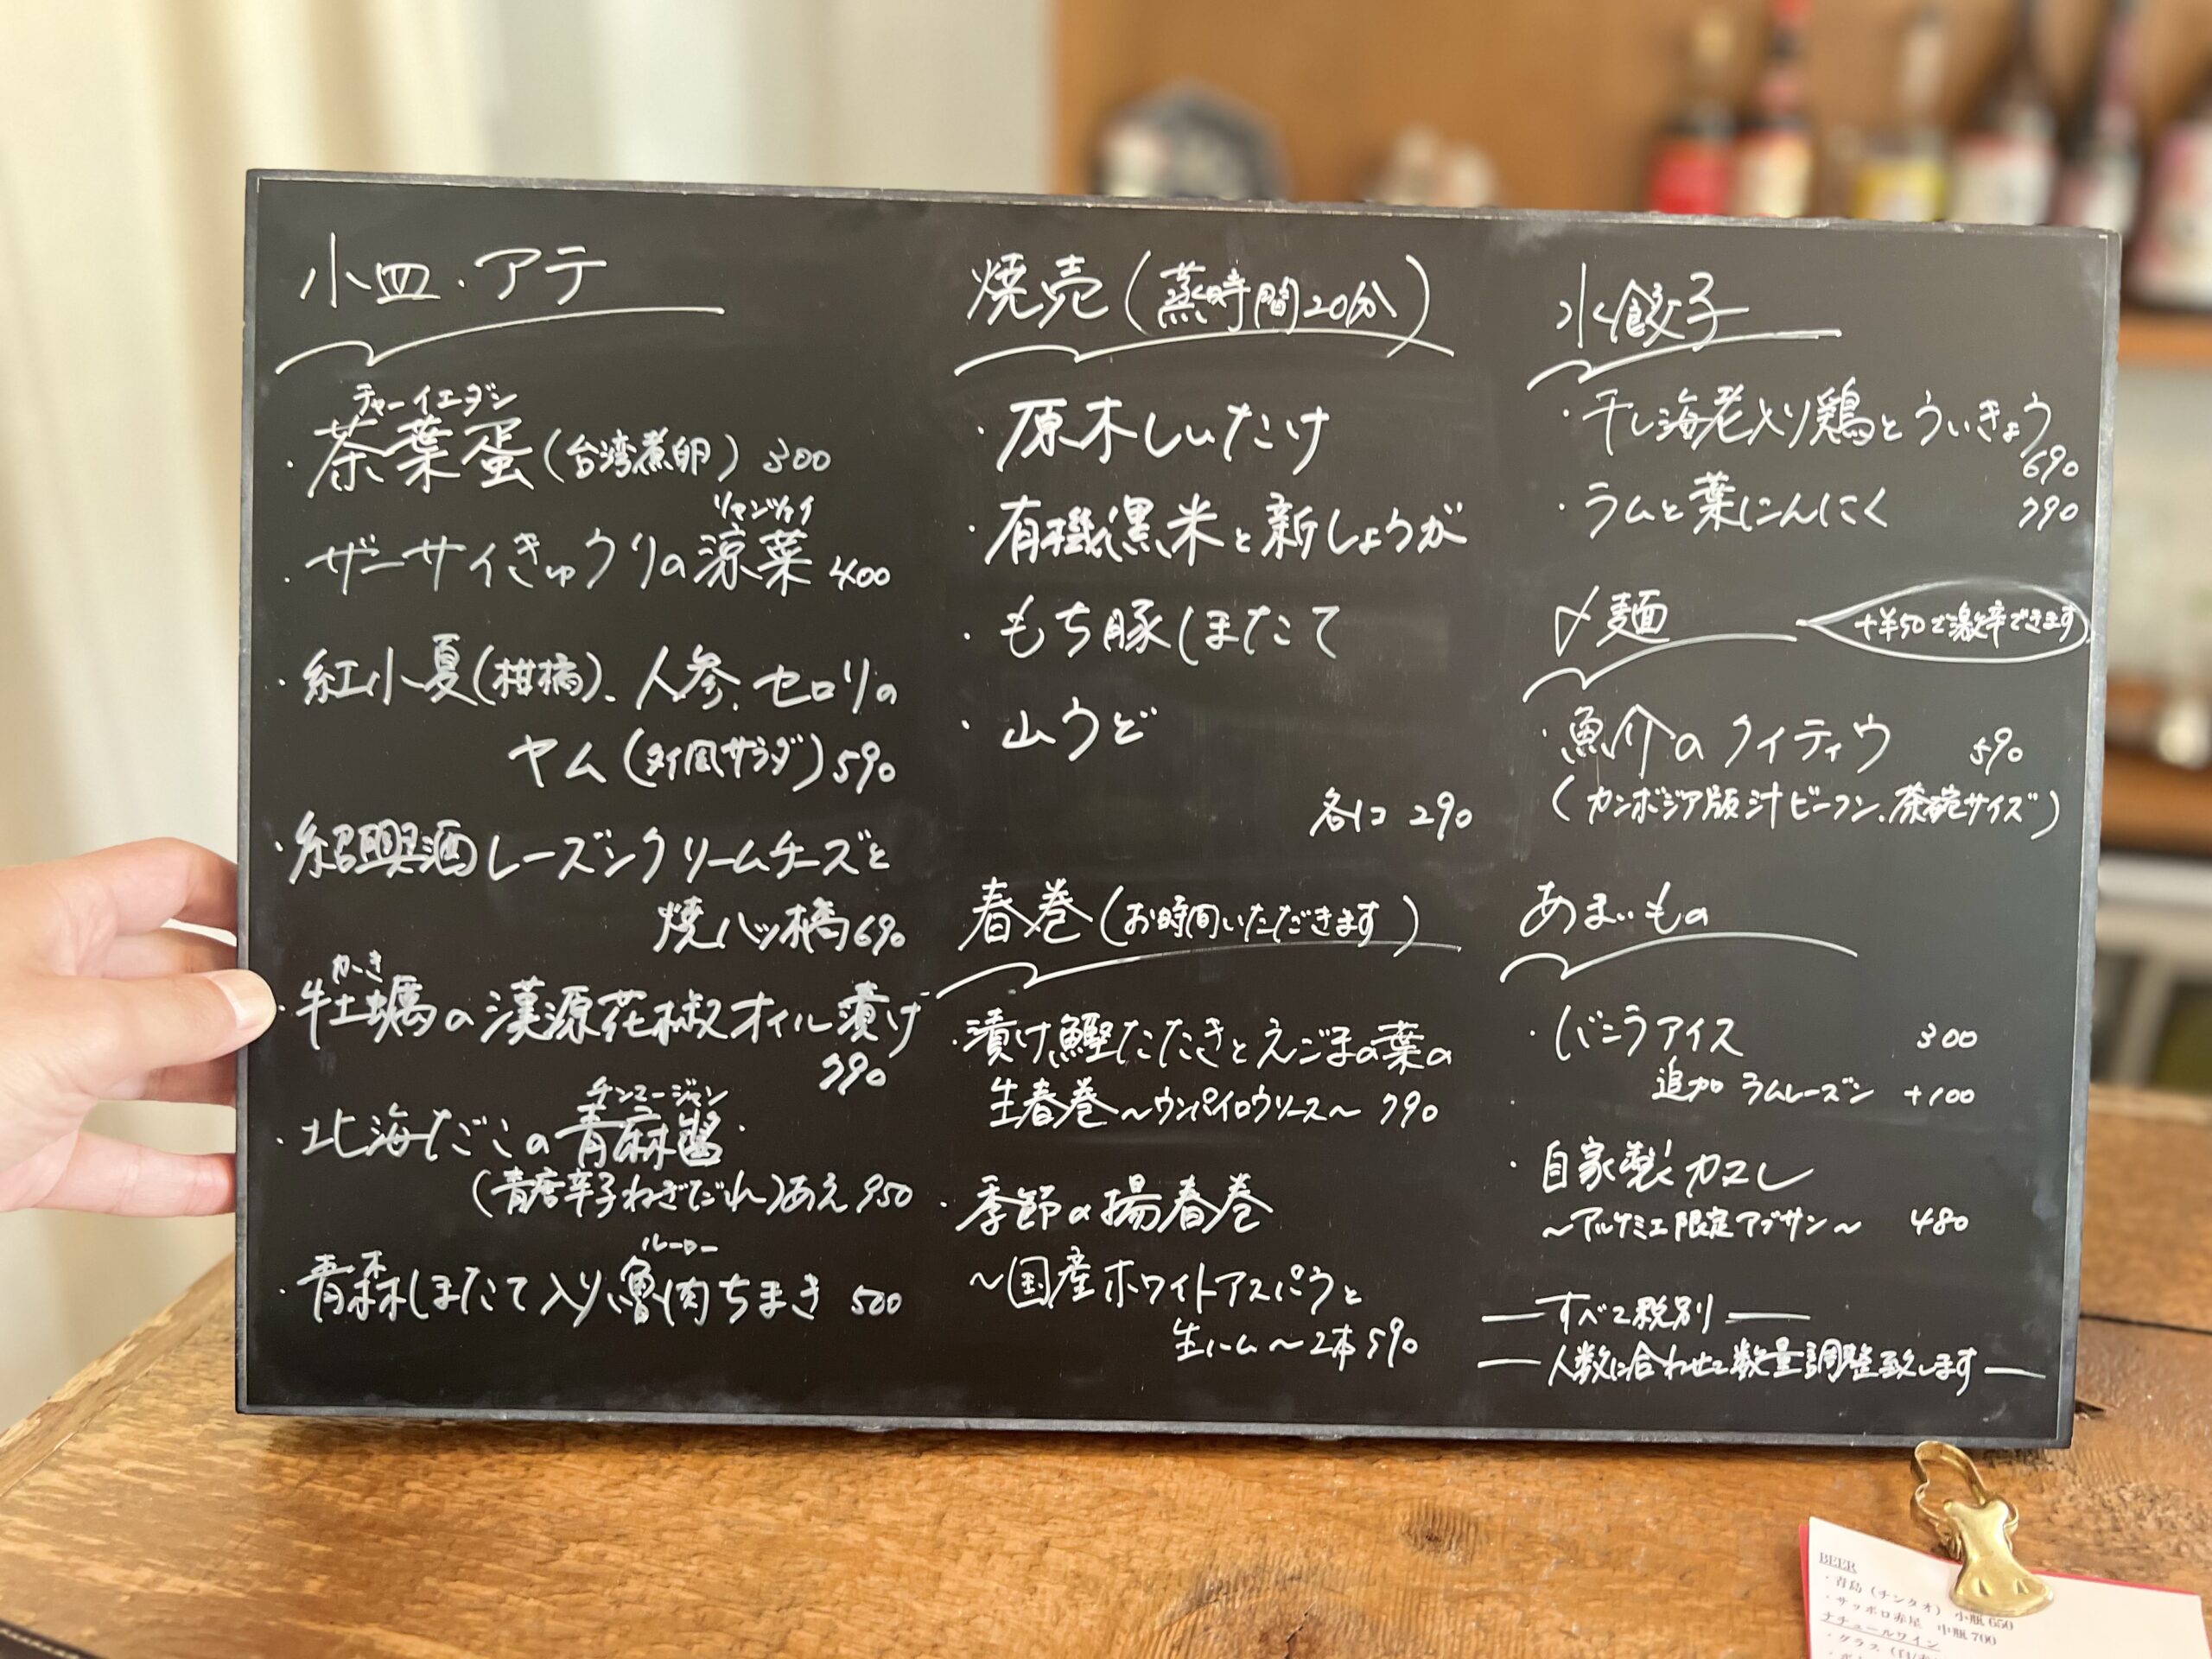 小皿・アテ
チャーイエダン
・茶葉蛋(台湾煮卵) 300
リャンツァイ
・ザーサイきゅうりの涼菜 400
・紅小夏(柑橘)、人参、セロリの
ヤム(タイ風サラダ) 590
・紹興酒レーズンクリームチーズと
焼八ッ橋 690
かき
・牡蠣の漢源花椒オイル漬け
790
チンマージャン
・北海だこの青麻醤
(青唐辛子ねぎだれ)あえ 950
ルーロー
・青森ほたて入り魯肉ちまき 500
焼売(蒸時間20分)
・原木しいたけ
・有機黒米と新しょうが
・もち豚ほたて
・山うど
各1コ 290
春巻(お時間いただきます)
・漬け鰹たたきとえごまの葉の
生春巻〜ウンパイロウソース〜 790
・季節の揚春巻
〜国産ホワイトアスパラと
生ハム〜2本 590
水餃子
・干し海老入り鶏とういきょう
690
・ラムと葉にんにく 790
〆麺
+¥50で激辛できます
・魚介のクイティウ 590
(カンボジア版汁ビーフン、茶碗サイズ)
あまいもの
・バニラアイス 300
追加 ラムレーズン +100
・自家製カヌレ
〜アルケミエ限定アブサン〜 480
—すべて税別—
—人数に合わせて数量調整致します—
BEER
・青島(チンタオ) 小瓶650
・サッポロ赤星 中瓶700
ナチュールワイン